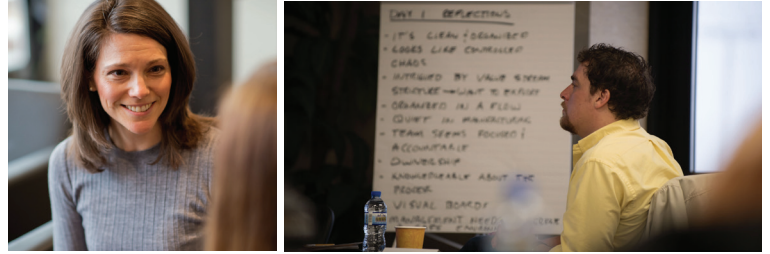 DAY 1 REFLECTIONS
- IT'S CLEAN & ORGANIZED
- LOOKS LIKE CONTROLLED
CHAOS
- INTRIGUED BY VALUE STREAM
STRUCTURE → WANT TO EXPLORE
- ORGANIZED IN A FLOW
- QUIET IN MANUFACTURING
- TEAM SEEMS FOCUSED &
ACCOUNTABLE
- OWNERSHIP
- KNOWLEDGEABLE ABOUT THE
PROCESS
- VISUAL BOARDS
- MANAGEMENT NEEDS